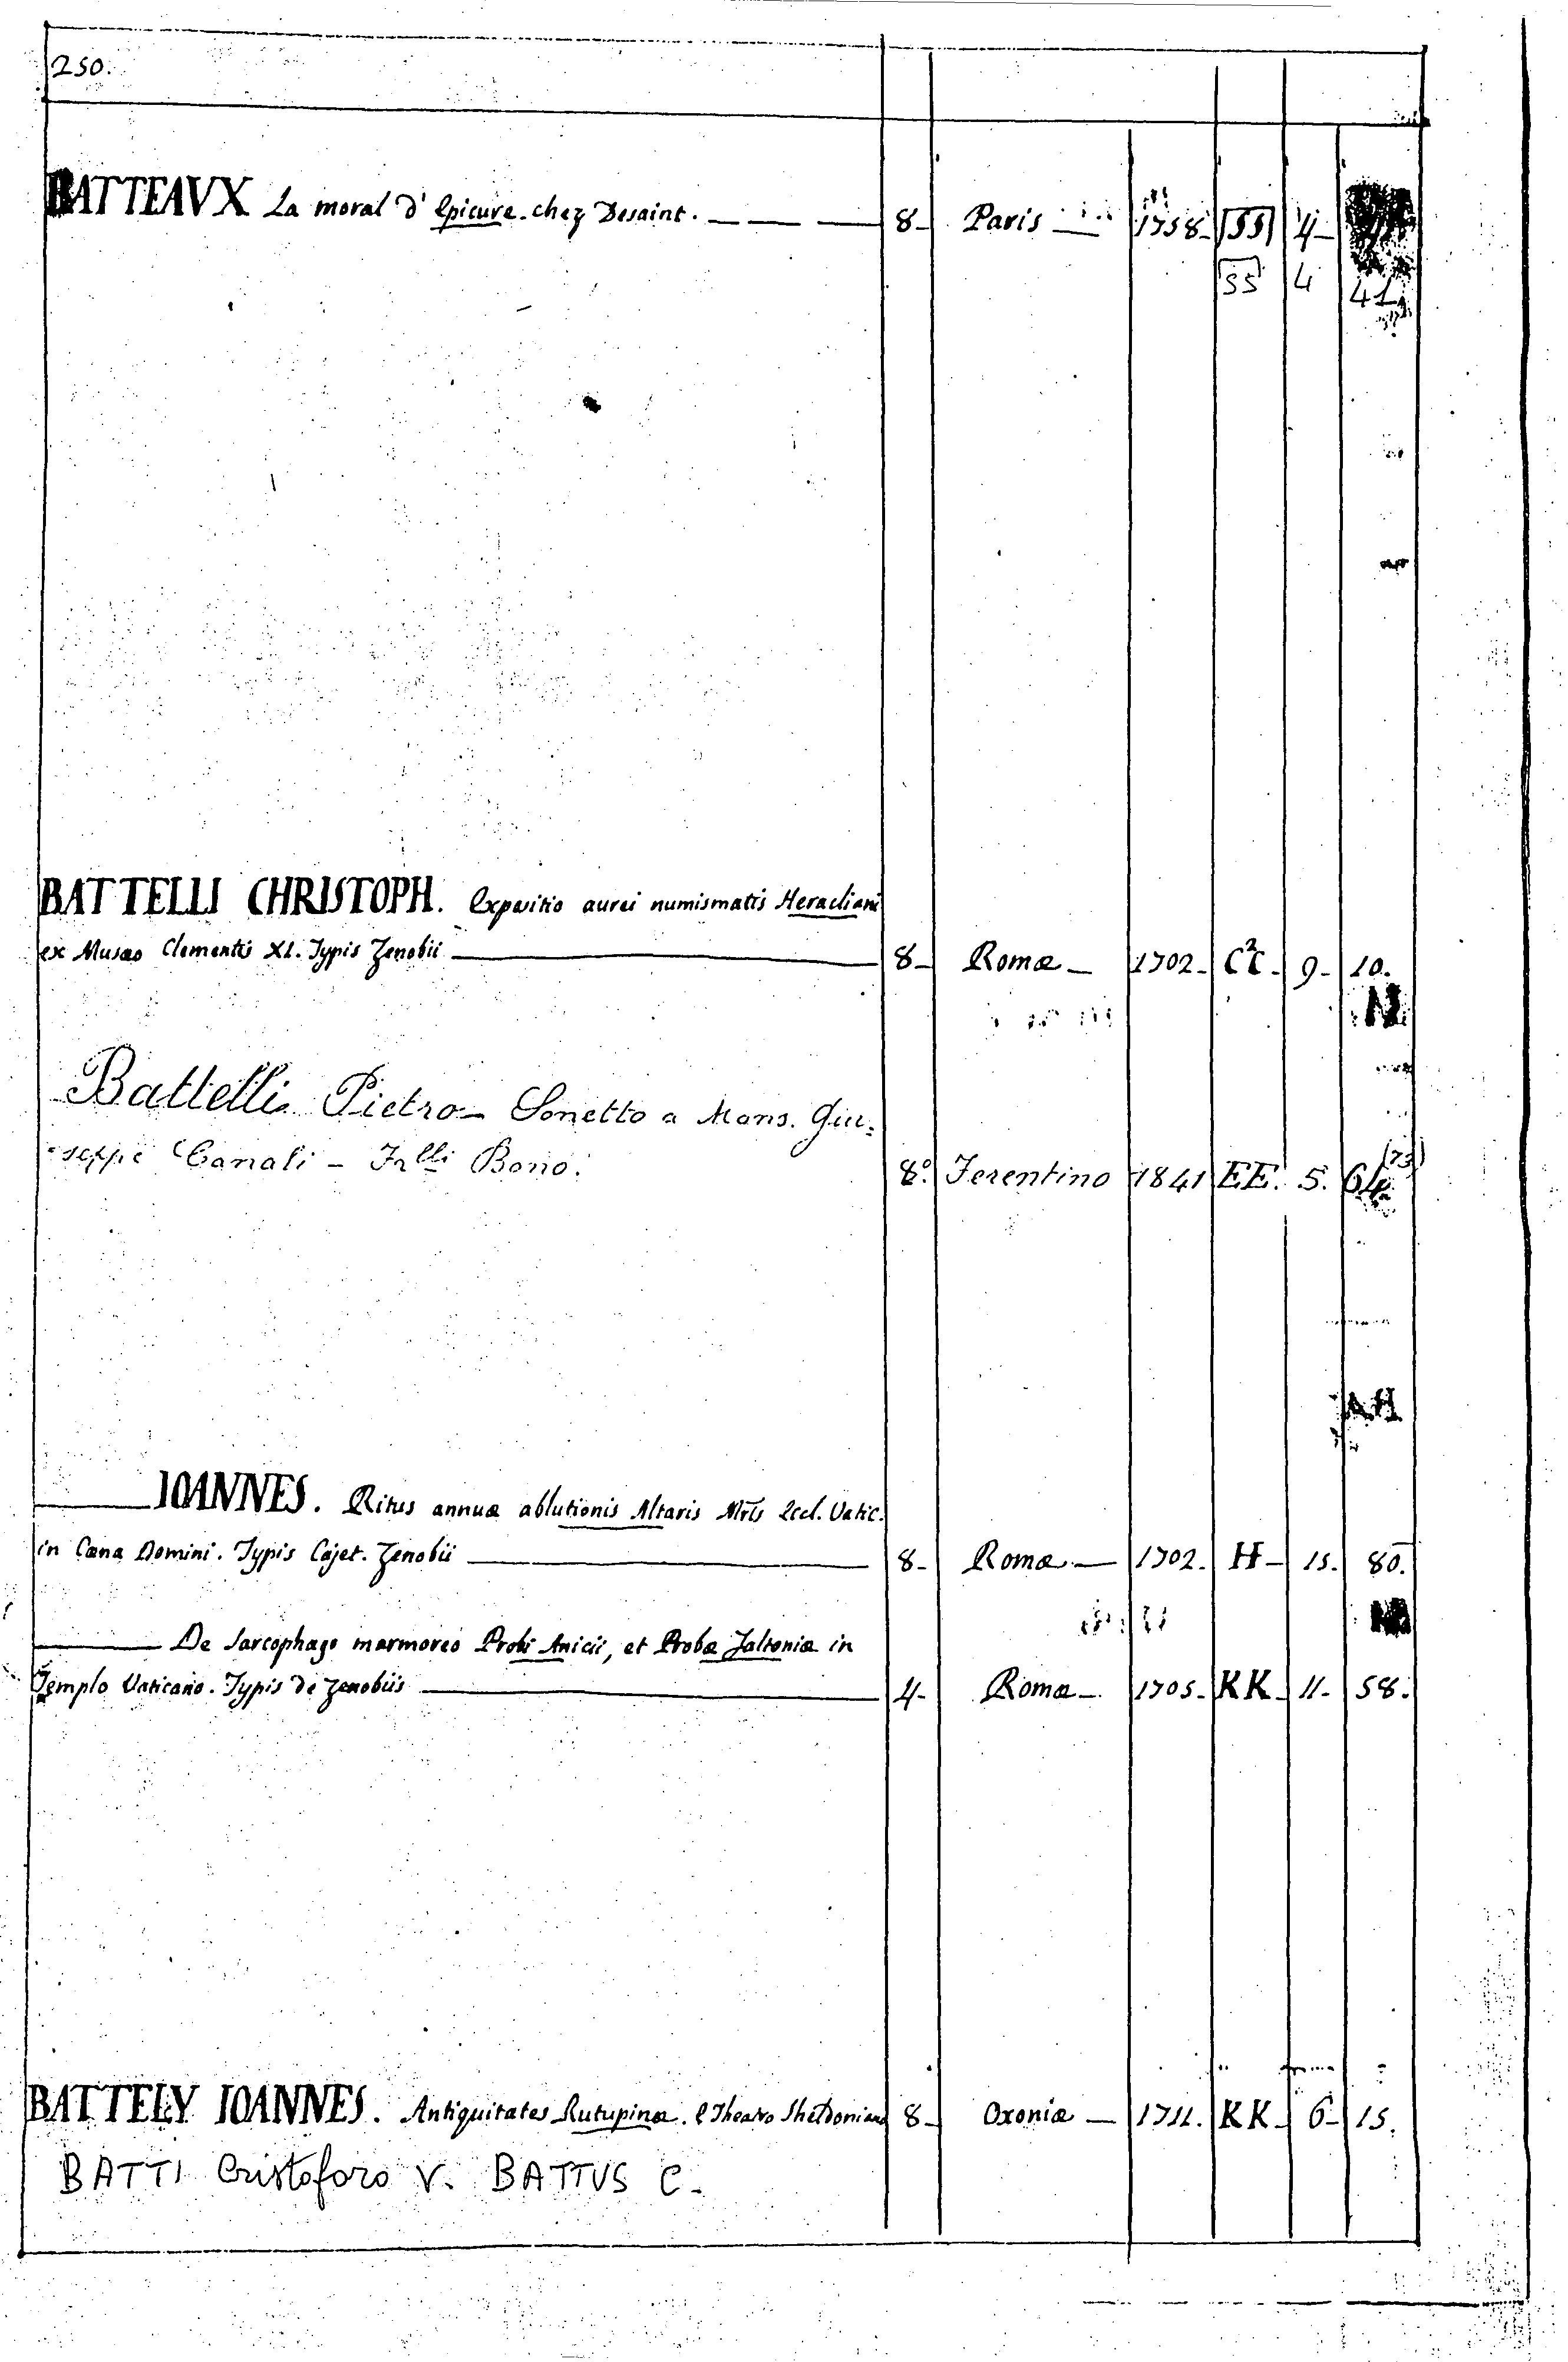 250.
BATTEAVX La moral d' Epicure. chez Desaint. 8 Paris 1758 SS 4
SS 4 41
BATTELLI CHRISTOPH. Expositio aurei numismatis Heracliani
ex Musæo Clementis XI. Typis Zenobii 8 Romæ 1702 C²C 9 10.
Battelli Pietro - Sonetto a Mons. Giu=
=seppe Canali - Talli Bono. 8º Ferentino 1841 EE. 5. 64 (23)
IOANNES. Ritus annuæ ablutionis Altaris Eccl. Vatic.
in Cæna Domini. Typis Cajet. Zenobii 8 Romæ 1702. H 15. 80.
De Sarcophago marmoreo Probi Anicii, et Probæ Faltoniæ in
Templo Vaticano. Typis de Zenobiis 4 Romæ 1705 KK 11 58.
BATTELY IOANNES. Antiquitates Rutupinæ. e Theatro Sheldoniano 8 Oxoniæ 1711. KK 6 15.
BATTI Cristoforo V. BATTUS C.